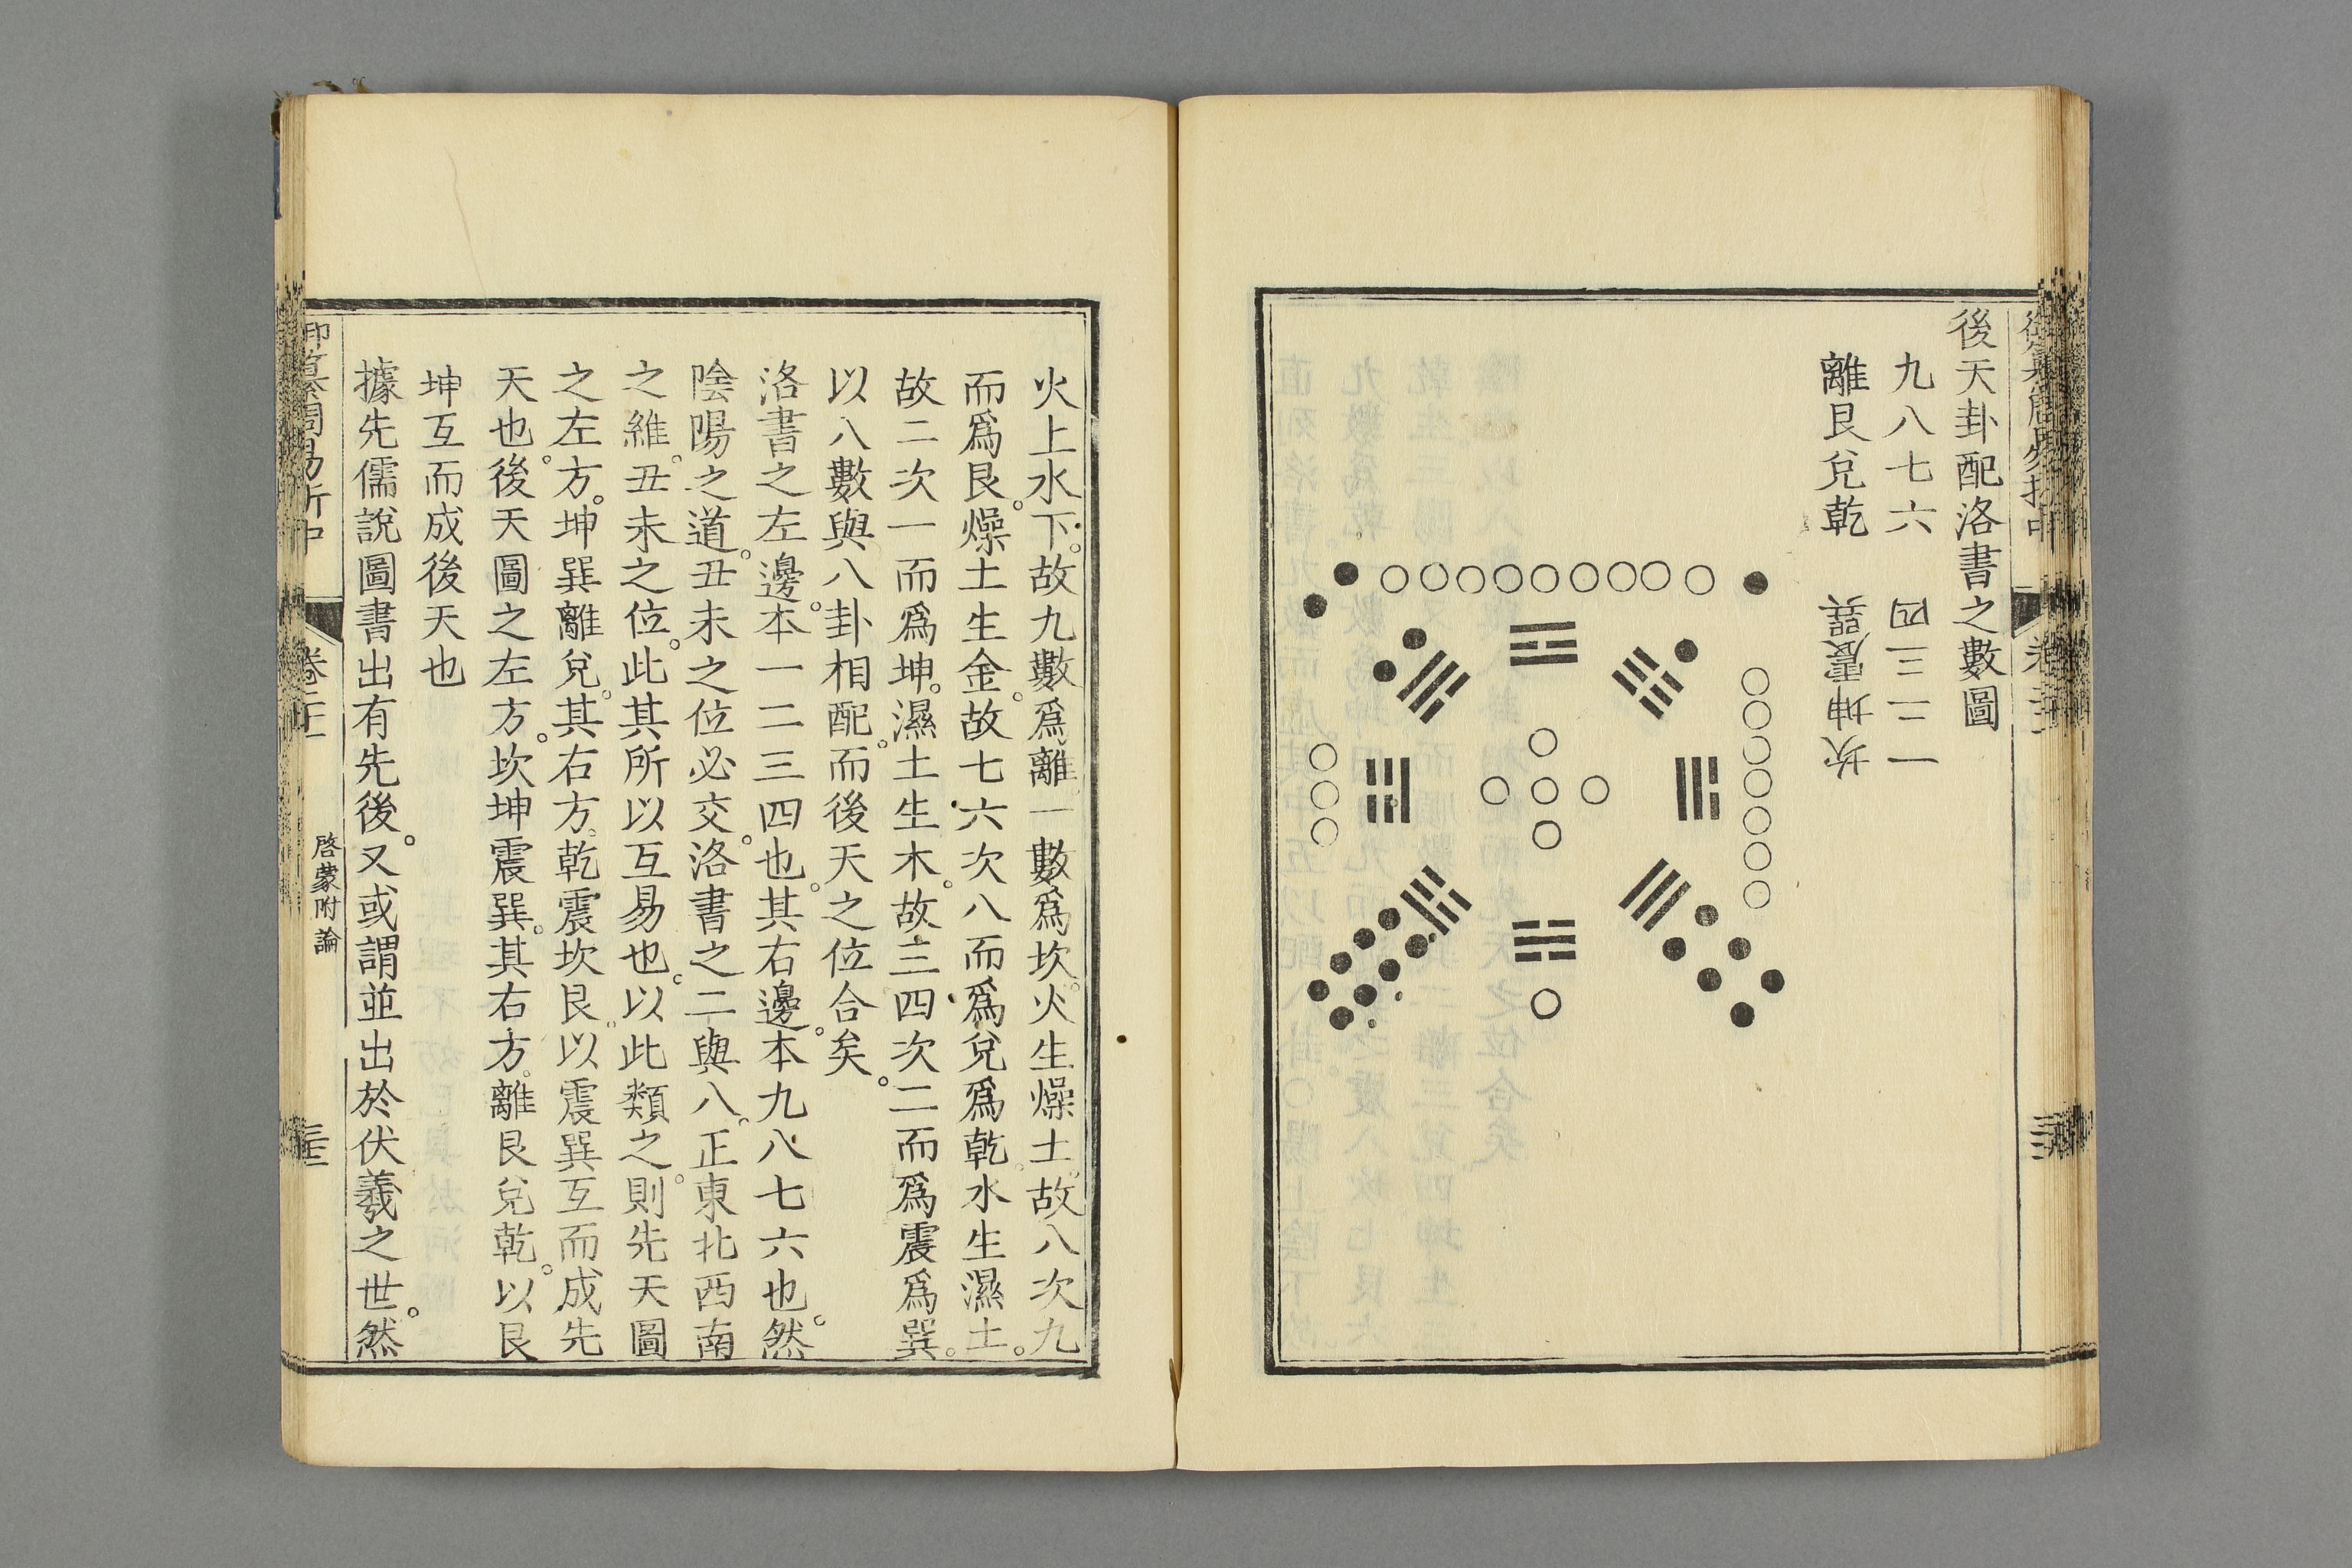 後天卦配洛書之數圖
九八七六　四三二一
離艮兌乾　巽震坤坎
火上水下。故九數爲離。一數爲坎。火生燥土。故八次九
而爲艮。燥土生金。故七六次八而爲兌爲乾。水生濕土。
故二次一而爲坤。濕土生木。故三四次二而爲震爲巽。
以八數與八卦相配。而後天之位合矣。
洛書之左邊。本一二三四也。其右邊。本九八七六也。然
陰陽之道。丑未之位必交。洛書之二與八。正東北西南
之維。丑未之位。此其所以互易也。以此類之。則先天圖
之左方。坤巽離兌。其右方。乾震坎艮。以震巽互而成先
天也。後天圖之左方。坎坤震巽。其右方。離艮兌乾。以艮
坤互而成後天也
據先儒說圖書出有先後。又或謂並出於伏羲之世。然
御纂周易折中
啓蒙附論